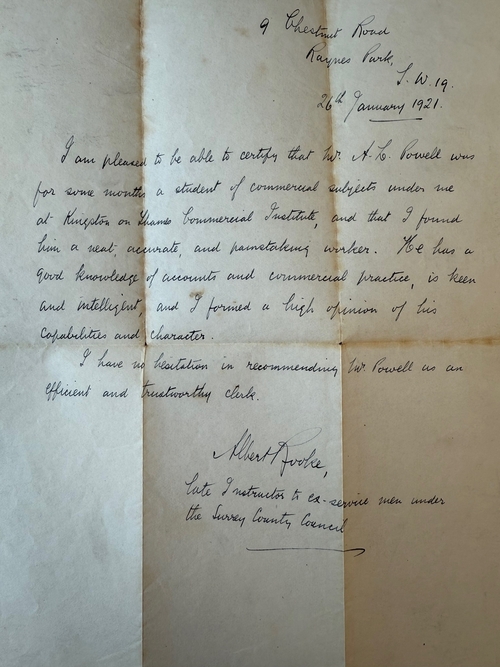 9 Chestnut Road
Raynes Park,
S.W.19.
26th January 1921.
I am pleased to be able to certify that Mr. A. L. Powell was
for some months a student of commercial subjects under me
at Kingston on Thames Commercial Institute, and that I found
him a neat, accurate, and painstaking worker. He has a
good knowledge of accounts and commercial practice, is keen
and intelligent and I formed a high opinion of his
capabilities and character.
I have no hesitation in recommending Mr. Powell as an
efficient and trustworthy clerk.
Albert Rooke,
late Instructor to ex-service men under
the Surrey County Council